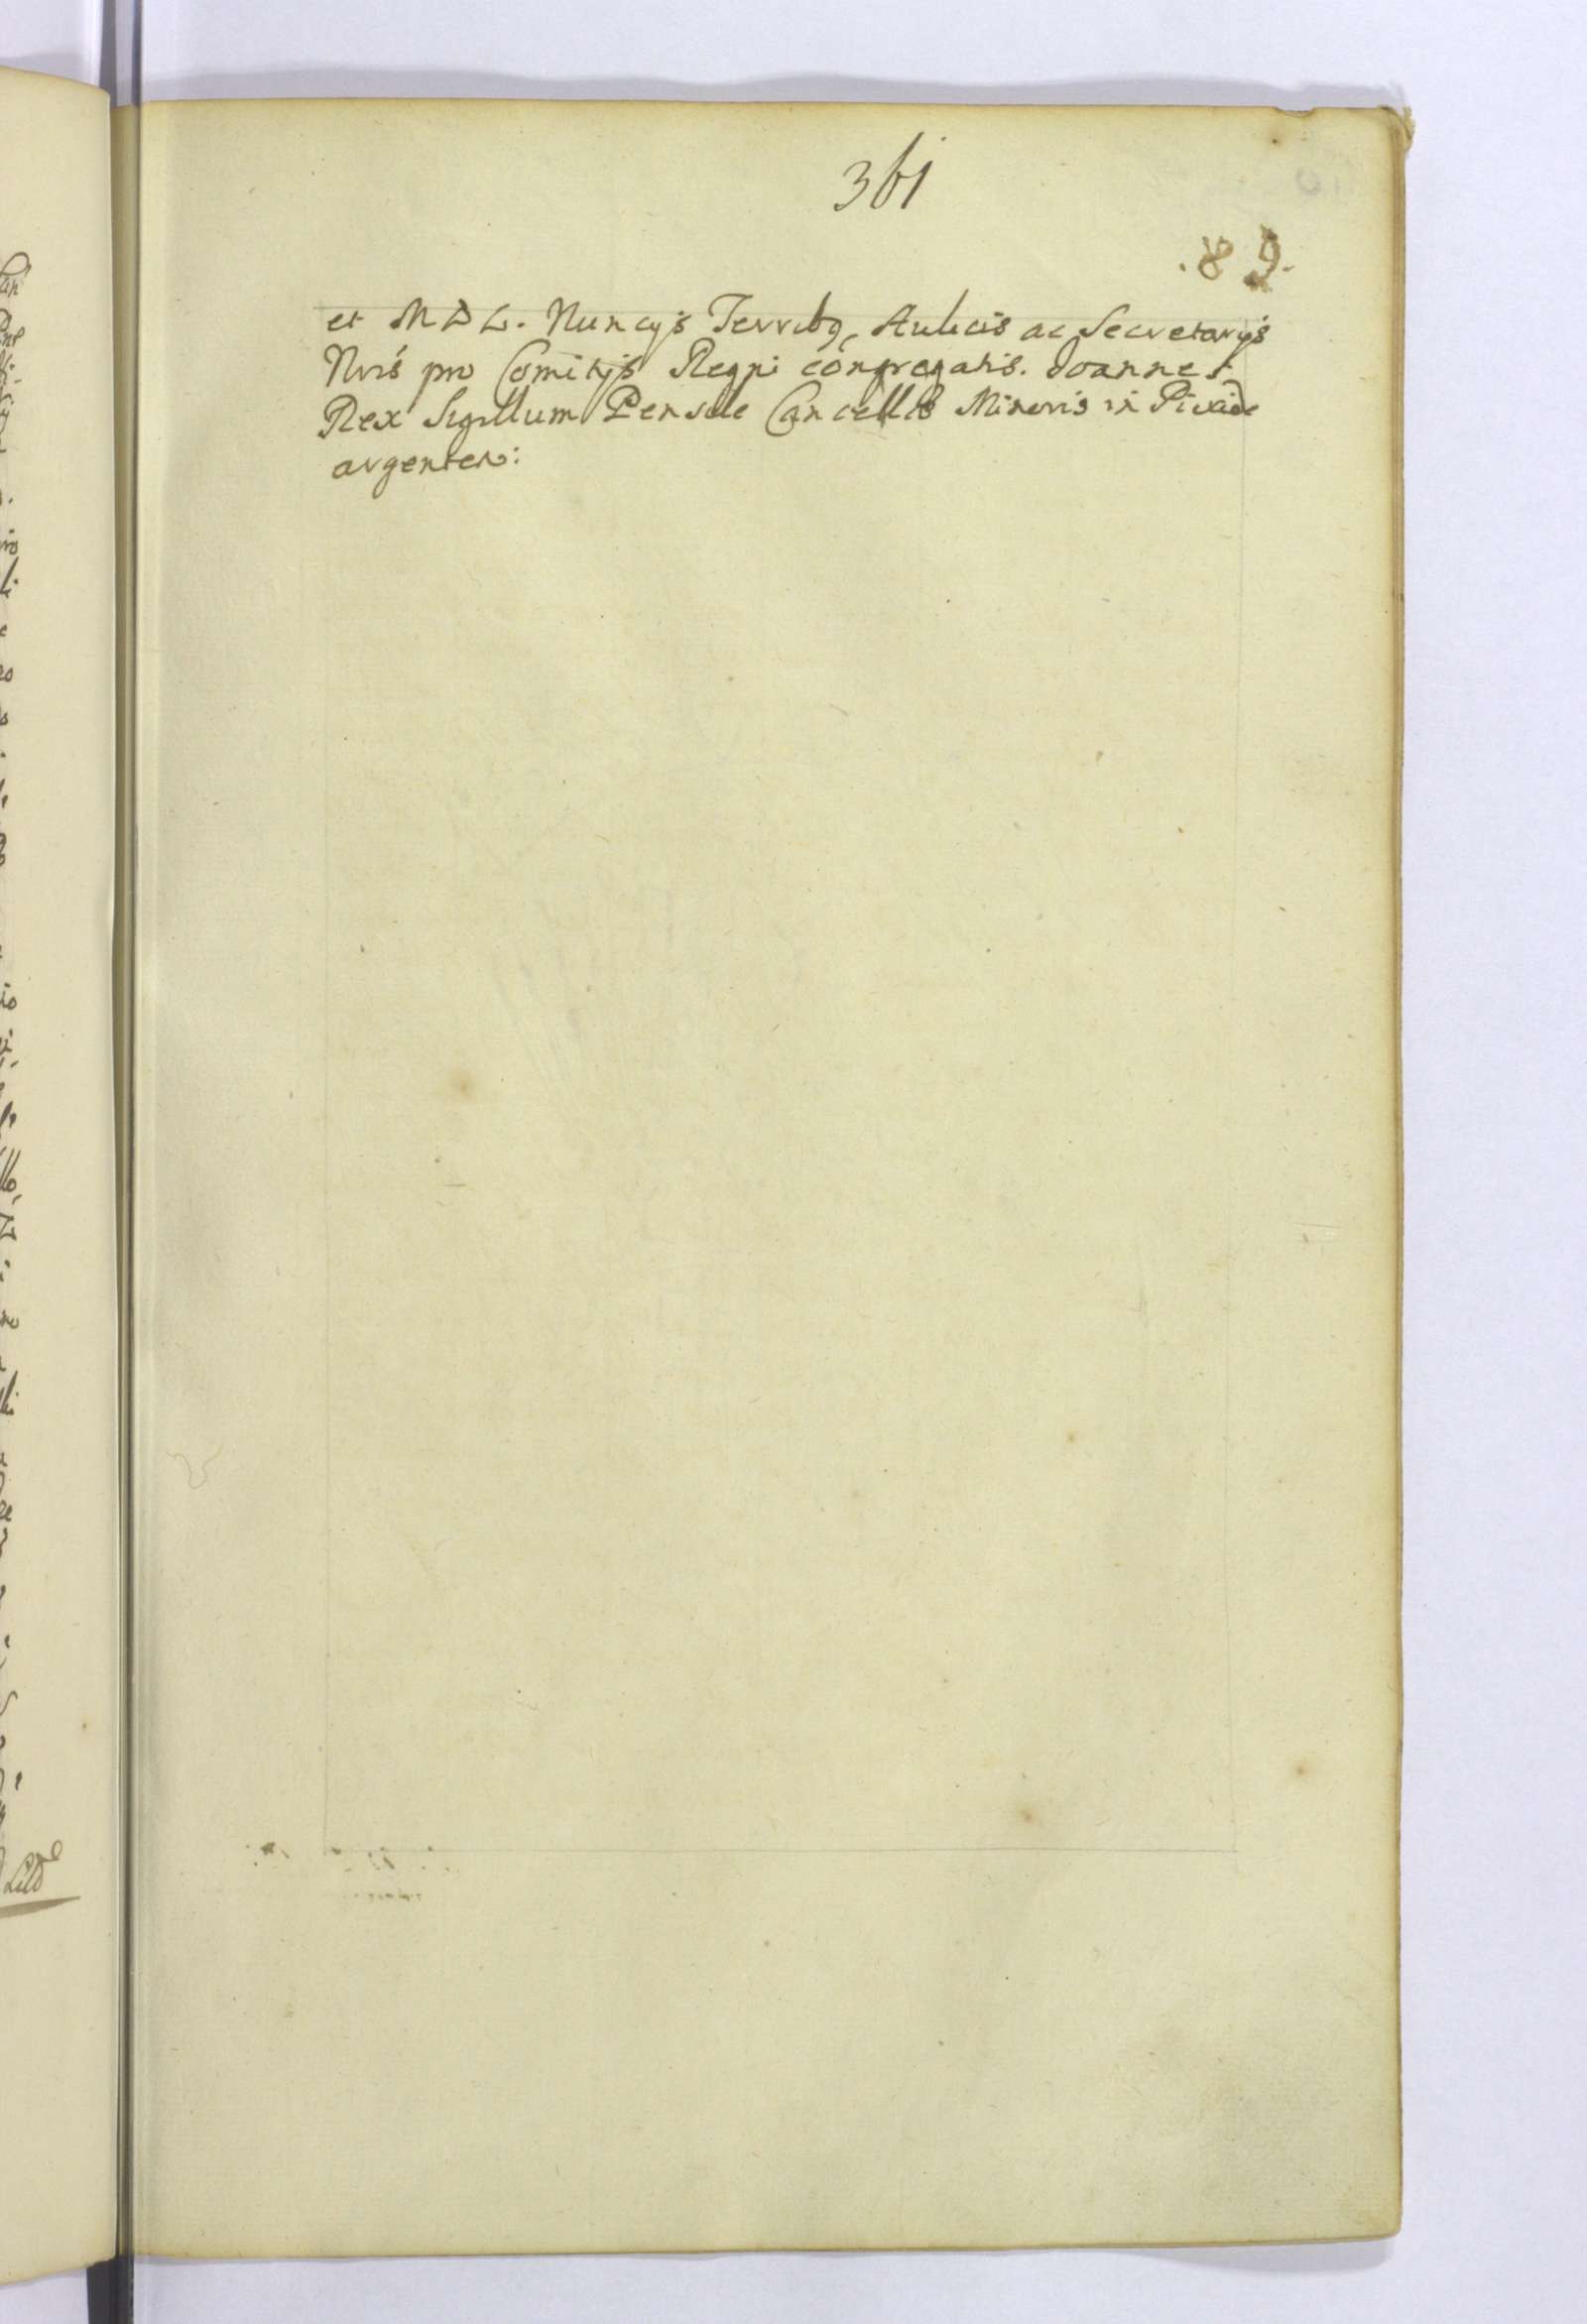 361
.89.
et M D L. Nuncijs Terribq, Aulicis ac Secretarijs
Nris pro Comitijs Regni congregatis. Joannes
Rex Sigillum Pensile Cancellae Minoris in Pixide
argentea: